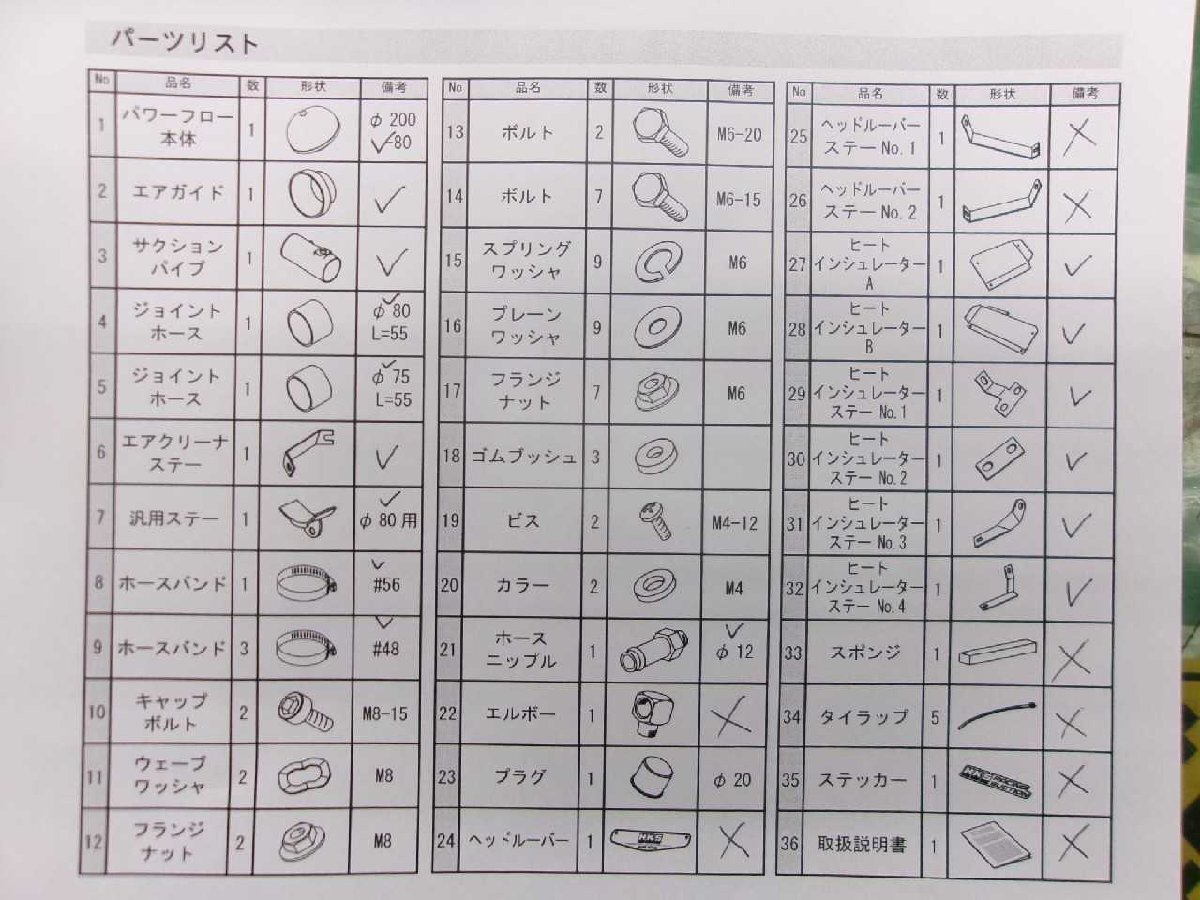 パーツリスト
No 品名 数 形状 備考
1 パワーフロー本体 1 φ200 ✓-80
2 エアガイド 1 ✓
3 サクションパイプ 1 ✓
4 ジョイントホース 1 ✓ φ80 L=55
5 ジョイントホース 1 ✓ φ75 L=55
6 エアクリーナステー 1 ✓
7 汎用ステー 1 ✓ φ80用
8 ホースバンド 1 ✓ #56
9 ホースバンド 3 ✓ #48
10 キャップボルト 2 M8-15
11 ウェーブワッシャ 2 M8
12 フランジナット 2 M8
No 品名 数 形状 備考
13 ボルト 2 M6-20
14 ボルト 7 M6-15
15 スプリングワッシャ 9 M6
16 プレーンワッシャ 9 M6
17 フランジナット 7 M6
18 ゴムブッシュ 3
19 ビス 2 M4-12
20 カラー 2 M4
21 ホースニップル 1 ✓ φ12
22 エルボー 1 ×
23 プラグ 1 φ20
24 ヘッドルーバー 1 HKS ×
No 品名 数 形状 備考
25 ヘッドルーバーステーNo.1 1 ×
26 ヘッドルーバーステーNo.2 1 ×
27 ヒートインシュレーターA 1 ✓
28 ヒートインシュレーターB 1 ✓
29 ヒートインシュレーターステーNo.1 1 ✓
30 ヒートインシュレーターステーNo.2 1 ✓
31 ヒートインシュレーターステーNo.3 1 ✓
32 ヒートインシュレーターステーNo.4 1 ✓
33 スポンジ 1 ×
34 タイラップ 5 ×
35 ステッカー 1 ×
36 取扱説明書 1 ×